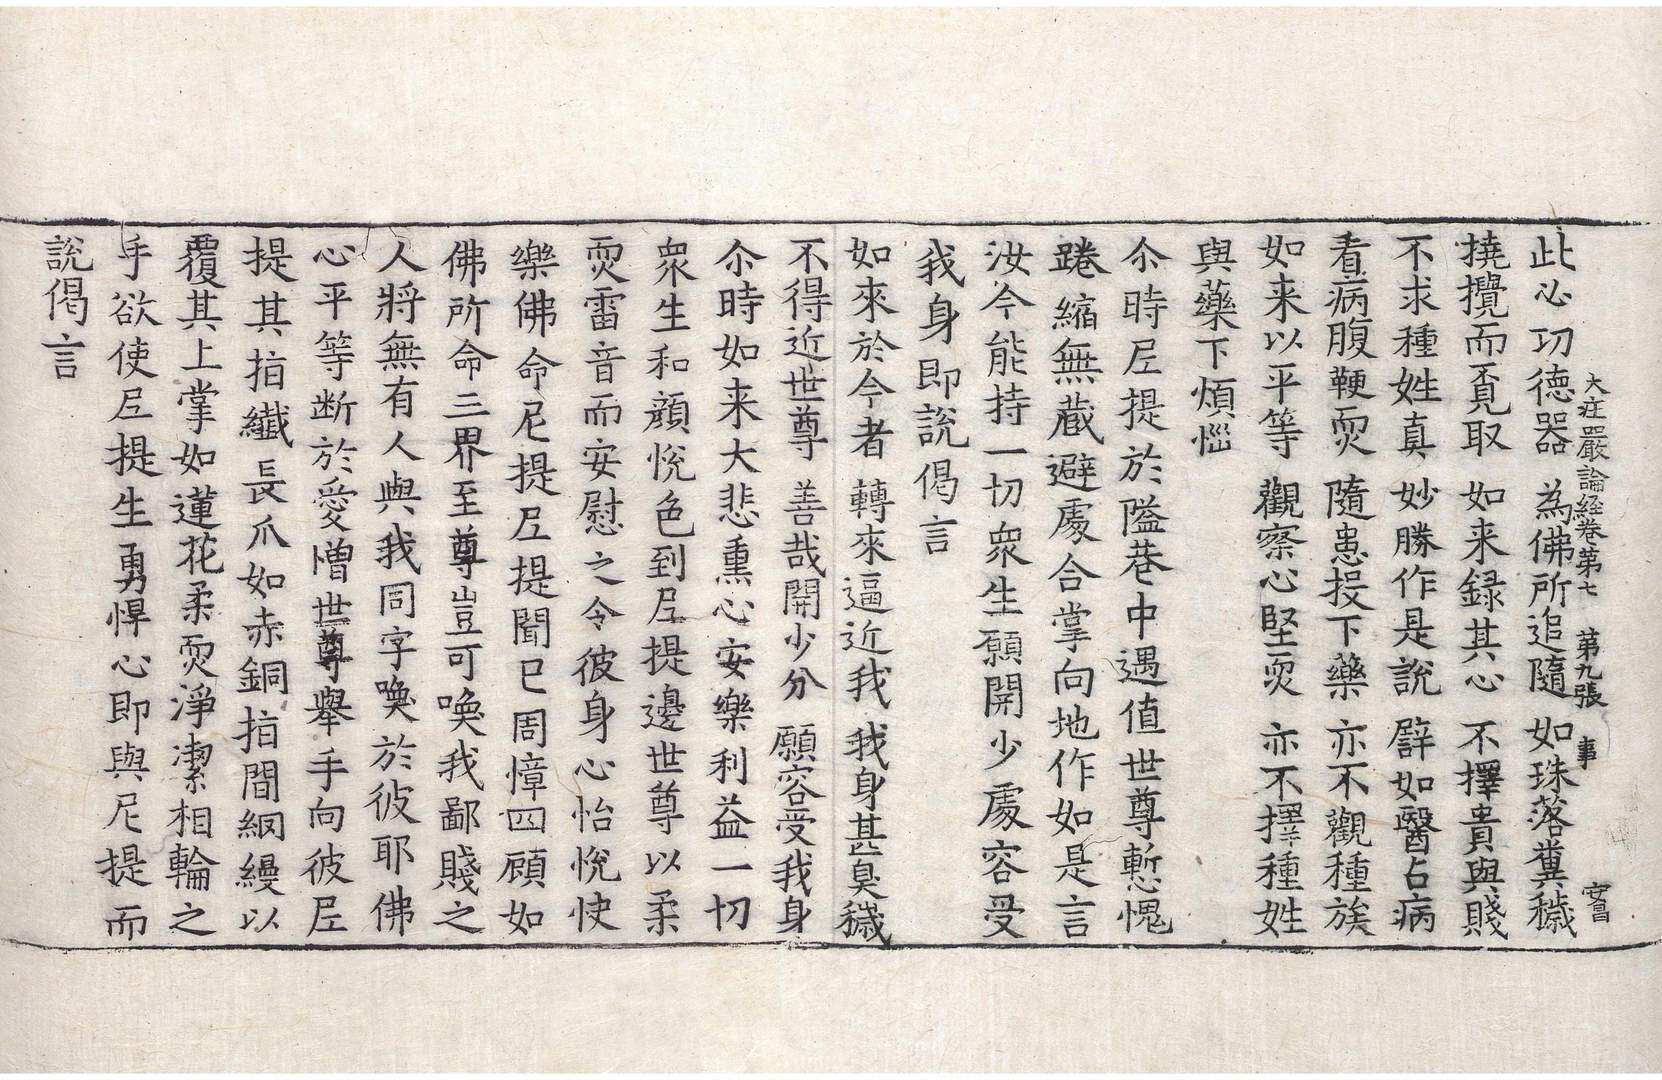 大莊嚴論経卷第七　第九張　事　安昌
此心功德器　為佛所追隨　如珠落糞穢
撓攪而覓取　如来録其心　不擇貴與賤
不求種姓真　妙勝作是說　譬如醫占病
看病腹鞕耎　隨患投下藥　亦不觀種族
如来以平等　觀察心堅耎　亦不擇種姓
與藥下煩惱
尒時𡰱提於隘巷中遇值世尊慙愧
踡縮無藏避處合掌向地作如是言
汝今能持一切衆生願開少處容受
我身即說偈言
如來於今者　轉來逼近我　我身甚臭穢
不得近世尊　善哉開少分　願容受我身
尒時如来大悲熏心安樂利益一切
衆生和顔悅色到𡰱提邊世尊以柔
耎雷音而安慰之令彼身心怡悅快
樂佛命尼提𡰱提聞已周慞四顧如
佛所命三界至尊豈可喚我鄙賤之
人將無有人與我同字喚於彼耶佛
心平等断於愛憎世尊舉手向彼𡰱
提其拍纖長爪如赤銅拍間網縵以
覆其上掌如蓮花柔耎淨潔相輪之
手欲使𡰱提生勇悍心即與尼提而
說偈言